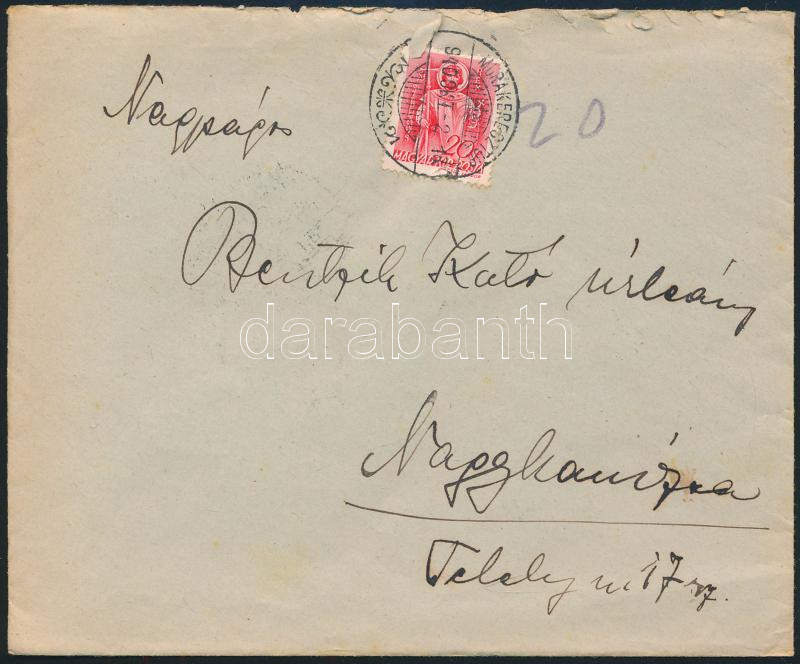 Nagyságos
MURAKERESZTÚR
20f
MAGYARORSZÁG
20
Bentzik Kató úrleány
darabanth
Nagykanizsa
Teleky u. 17 sz.